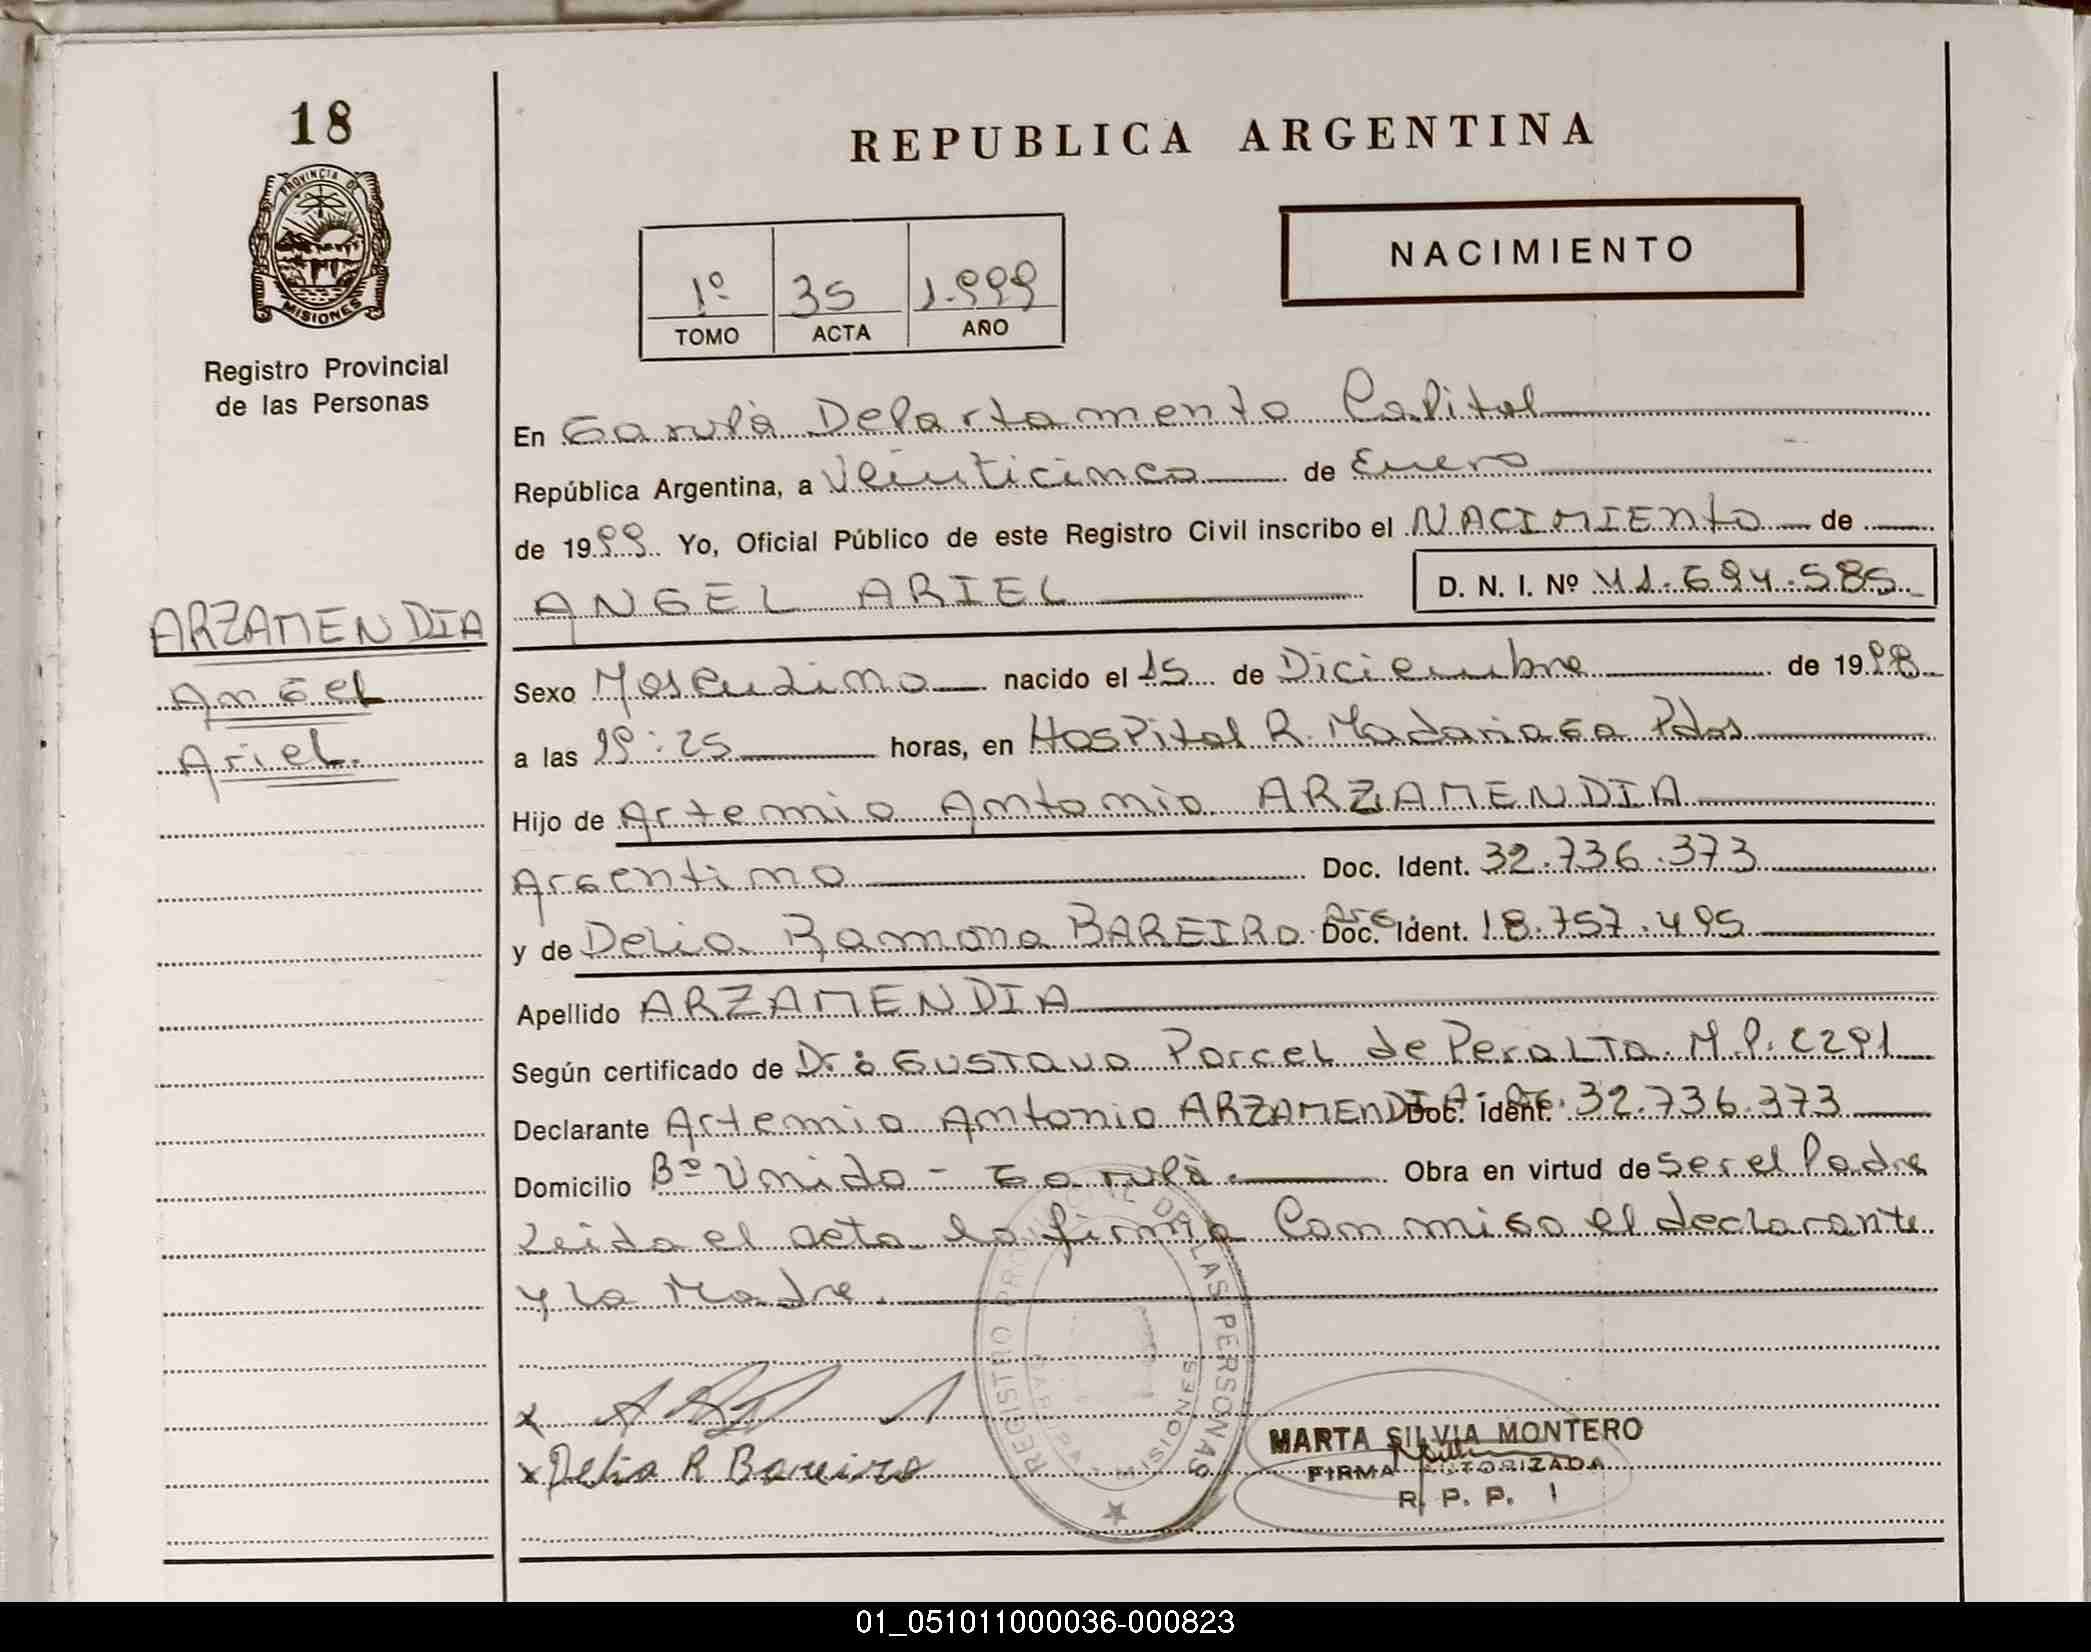 18
PROVINCIA DE
MISIONES
Registro Provincial
de las Personas
REPUBLICA ARGENTINA
NACIMIENTO
1º 35 1.999
TOMO ACTA AÑO
En Garupà Departamento Capital
República Argentina, a Veinticinco de Enero
de 1999 Yo, Oficial Público de este Registro Civil inscribo el NACIMIENTO de
ANGEL ARIEL D. N. I. Nº 41.694.585
ARZAMENDIA
Angel
Ariel.
Sexo Masculino nacido el 15 de Diciembre de 1998
a las 19:25 horas, en Hospital R. Madariaga Pdas
Hijo de Artemio Antonio ARZAMENDIA
Argentino Doc. Ident. 32.736.373
y de Delia Ramona BAREIRO Arg. Doc. Ident. 18.757.495
Apellido ARZAMENDIA
Según certificado de Dr: Gustavo Porcel de Peralta M.P. 2291
Declarante Artemio Antonio ARZAMENDIA Doc. Ident. 32.736.373
Domicilio Bº Unido - Garupà. Obra en virtud de ser el Padre
Leida el acta la firma Conmigo el declarante
y la Madre.
REGISTRO PROVINCIAL DE LAS PERSONAS
MISIONES
x
x Delia R Bareiro
MARTA SILVIA MONTERO
FIRMA AUTORIZADA
R. P. P. 1
01_051011000036-000823